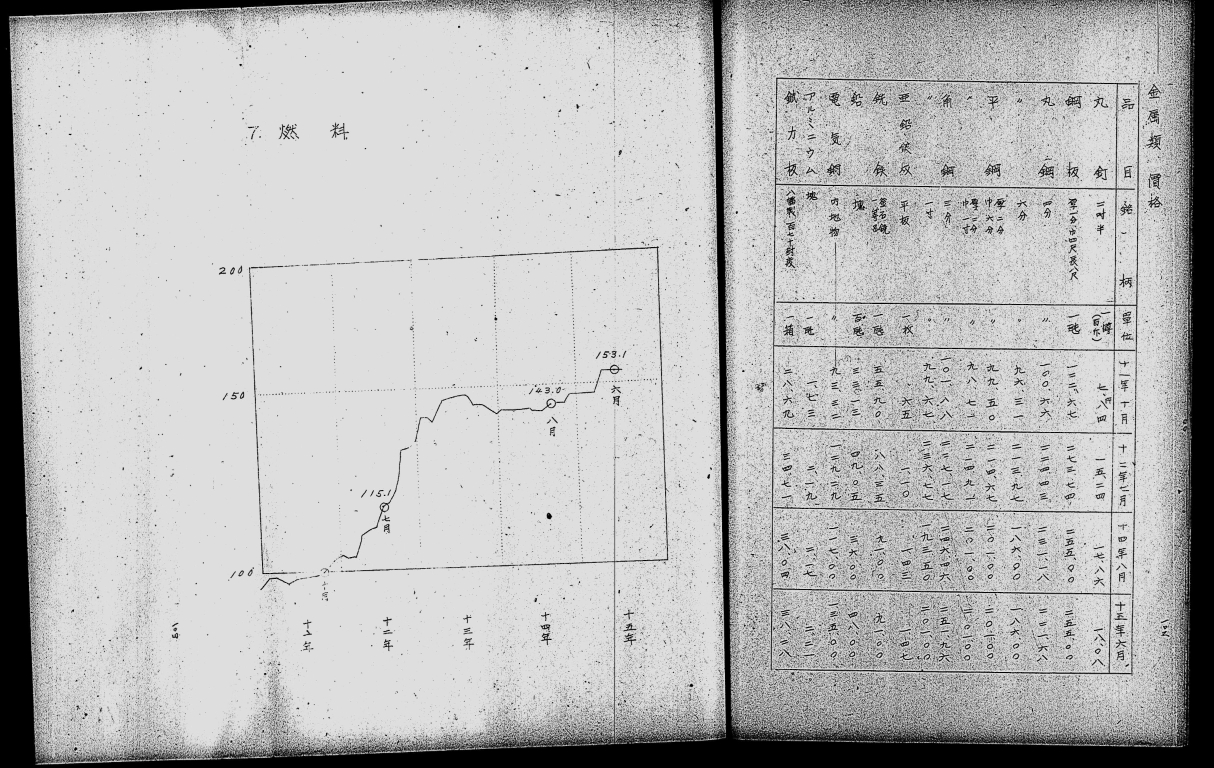 金属類價格
品目 銘柄 單位 十一年十月 十二年七月 十四年八月 十五年六月
丸釘 二吋半 一樽(百斤) 七.八四 一五.二四 一七.八六 一八.〇八
鋼板 厚一分巾四尺長八尺 一瓲 一二二.六七 二七三.七四 二五五.〇〇 二五五.〇〇
丸鋼 四分 〃 一〇〇.六六 二二四.四三 二三一.一八 二三一.六八
〃 六分 〃 九六.三一 二一三.九七 一八六.〇〇 一八六.〇〇
平鋼 厚二分巾六分 〃 九九.五〇 二一四.〇七 二〇一.〇〇 二〇一.〇〇
〃 厚二分巾一寸 〃 九八.七一 二一四.九一 二〇一.〇〇 二〇一.〇〇
角鋼 三分 〃 一〇一.八八 二三七.一七 二四六.四六 二五一.九六
〃 一寸 〃 九九.六七 二三六.七七 一九三.五〇 二〇一.〇〇
亜鉛鉄板 平板 一枚 .六五 一.一〇 一.四三 一.四七
銑鉄 釜石銑一等品 一瓲 五五.九〇 八八.三五 九一.〇〇 九一.〇〇
鉛 塊 百瓩 四九.〇五 三六.〇〇 四八.〇〇
電気銅 内地物 〃 九三.三二 一二九.二九 一一七.〇〇 一五〇.〇〇
アルミニウム 塊 一瓩 一.七三 二.一九 二.一七 二.二二
鉄力板 八幡製百七十封度 一箱 二八.六九 三四.七一 三八.〇四 三八.二八
7. 燃料
200
150
100
115.1
七月
143.0
八月
153.1
六月
十月
十一年
十二年
十三年
十四年
十五年